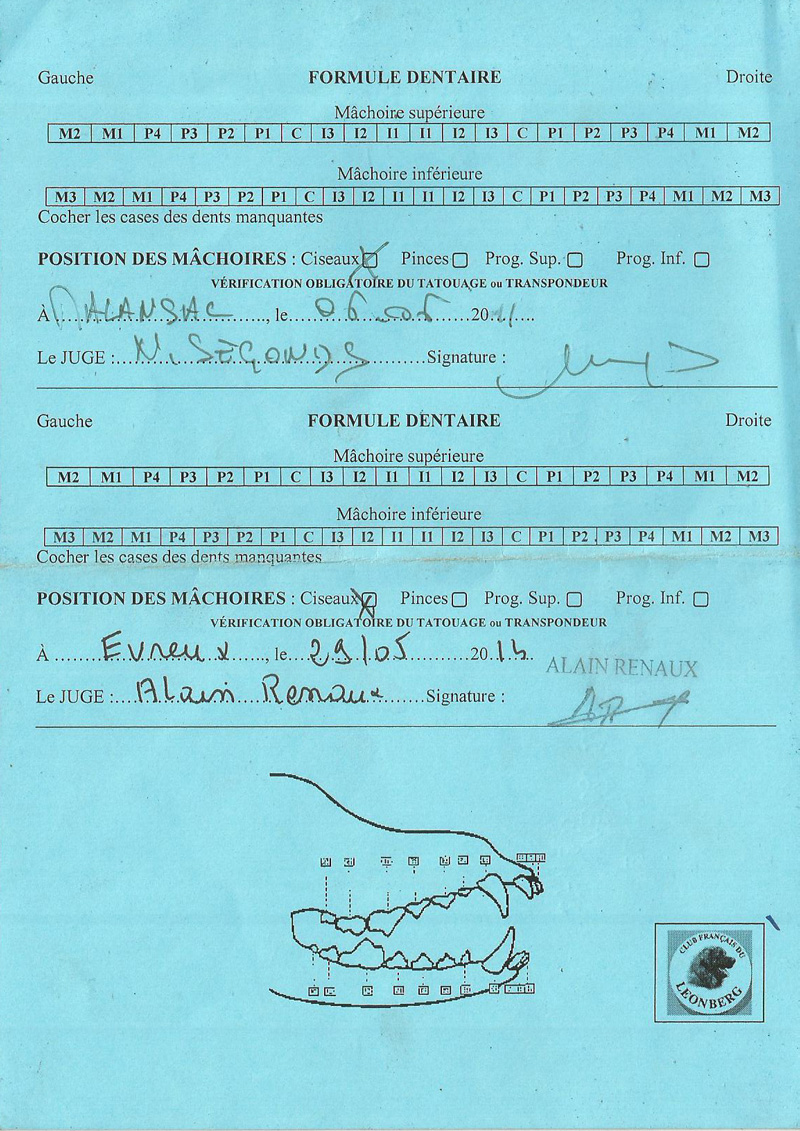 Gauche FORMULE DENTAIRE Droite
Mâchoire supérieure
M2 M1 P4 P3 P2 P1 C I3 I2 I1 I1 I2 I3 C P1 P2 P3 P4 M1 M2
Mâchoire inférieure
M3 M2 M1 P4 P3 P2 P1 C I3 I2 I1 I1 I2 I3 C P1 P2 P3 P4 M1 M2 M3
Cocher les cases des dents manquantes
POSITION DES MÂCHOIRES : Ciseaux Pinces Prog. Sup. Prog. Inf.
VÉRIFICATION OBLIGATOIRE DU TATOUAGE ou TRANSPONDEUR
À MALANSAC, le 05 20
Le JUGE : N. SEGONDS Signature :
Gauche FORMULE DENTAIRE Droite
Mâchoire supérieure
M2 M1 P4 P3 P2 P1 C I3 I2 I1 I1 I2 I3 C P1 P2 P3 P4 M1 M2
Mâchoire inférieure
M3 M2 M1 P4 P3 P2 P1 C I3 I2 I1 I1 I2 I3 C P1 P2 P3 P4 M1 M2 M3
Cocher les cases des dents manquantes
POSITION DES MÂCHOIRES : Ciseaux Pinces Prog. Sup. Prog. Inf.
VÉRIFICATION OBLIGATOIRE DU TATOUAGE ou TRANSPONDEUR
À Evreux, le 29/05 20
ALAIN RENAUX
Le JUGE : Alain Renaux Signature :
CLUB FRANÇAIS DU
LEONBERG